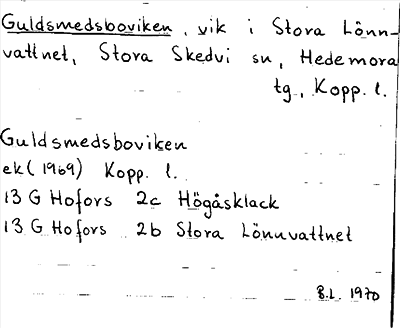 Guldsmedsboviken, vik i Stora Lönn-
vattnet, Stora Skedvi sn, Hedemora
tg., Kopp. l.
Guldsmedsboviken
ek (1969) Kopp. l.
13 G Hofors 2c Högåsklack
13 G Hofors 2b Stora Lönnvattnet
B.L. 1970